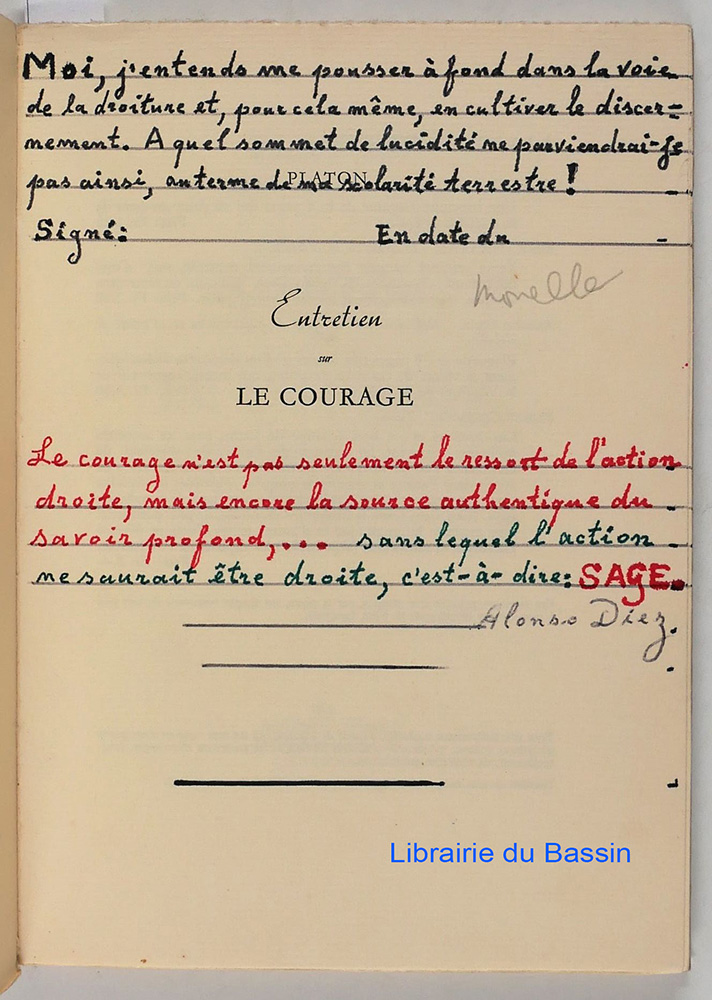 Moi, j'entends me pousser à fond dans la voie
de la droiture et, pour cela même, en cultiver le discer=
nement. A quel sommet de lucidité ne parviendrai-je
pas ainsi, au terme de ma scolarité terrestre !
PLATON
Signé: En date du
Entretien
sur
LE COURAGE
Le courage n'est pas seulement le ressort de l'action
droite, mais encore la source authentique du
savoir profond,... sans lequel l'action
ne saurait être droite, c'est-à-dire: SAGE.
Alonso Diez.
Librairie du Bassin